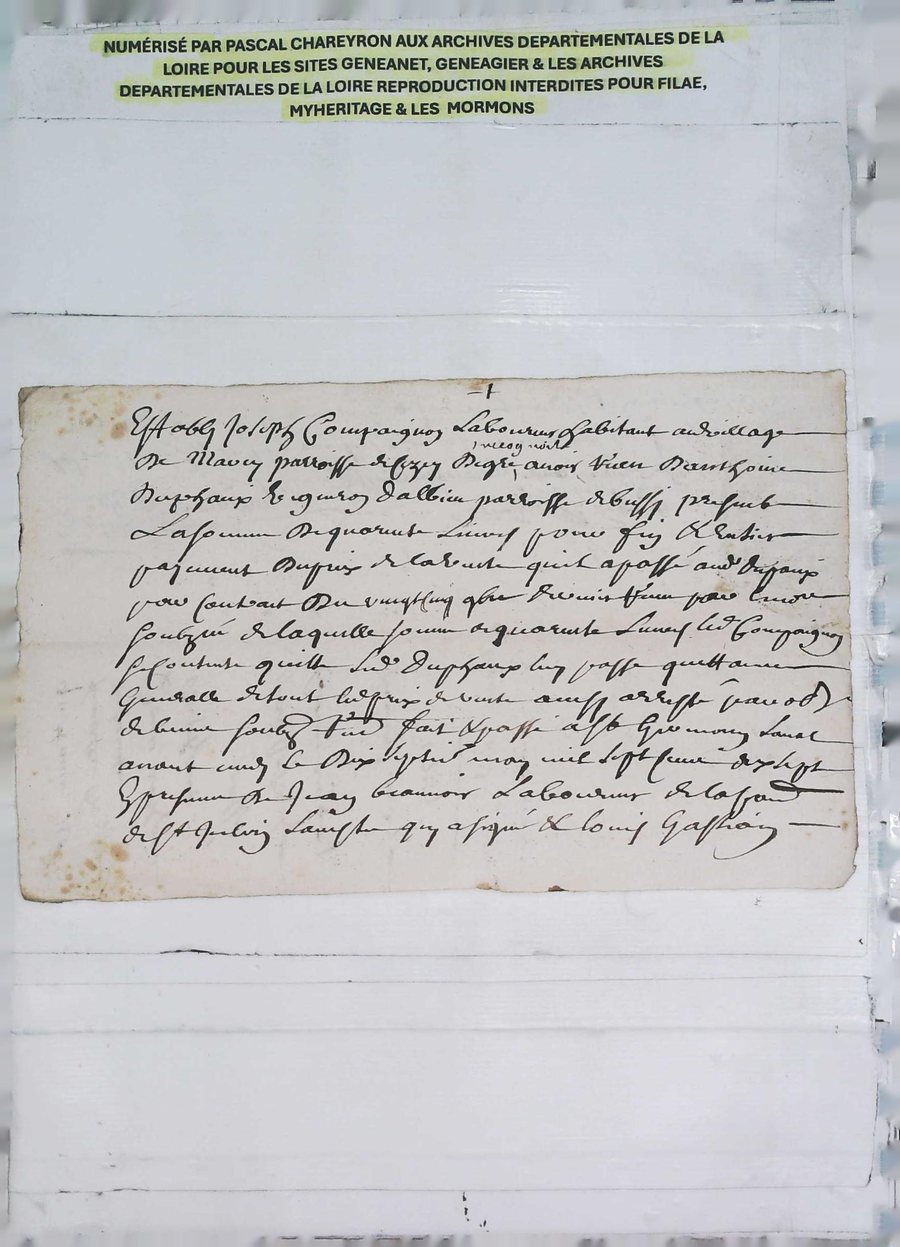 NUMÉRISÉ PAR PASCAL CHAREYRON AUX ARCHIVES DEPARTEMENTALES DE LA
LOIRE POUR LES SITES GENEANET, GENEAGIER & LES ARCHIVES
DEPARTEMENTALES DE LA LOIRE REPRODUCTION INTERDITES POUR FILAE,
MYHERITAGE & LES MORMONS
Estably Joseph Compaignon Laboureur habitant au village
recognoit
De parroisse de Cezay De gré avoir receu Danthoine
Duphaux vigneron dalbieu parroisse de bussi present
La somme De quarente Livres pour fin & Entier
payement Du prix de la vente quil a passé aud Dupaux
par Contrat Du vingtcinq 9bre dernier receu par le no.re
soubzné de laquelle somme de quarente Livres led Compaignon
se Contente quitte Led Duphaux luy passe quittance
Generalle de tout led prix de vente ainsy arresté
fait & passé a St Germain Laval
avant midy le Dix may mil sept cent dix sept
En presence De Jean Laboureur
de st Julien Laveste qui a signé & louis Gastion